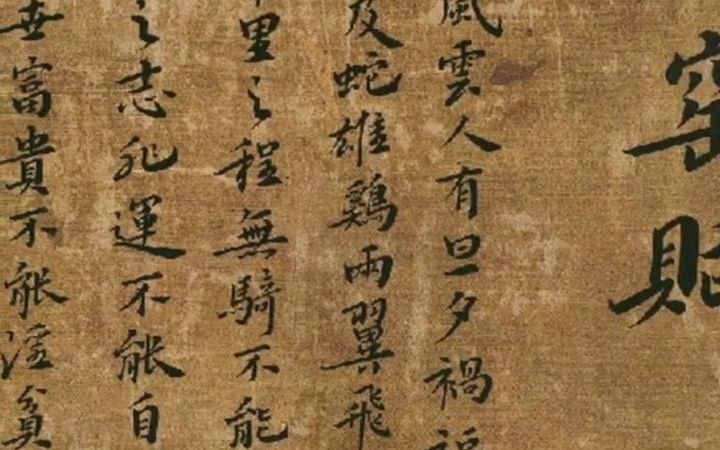 窑賦
風雲人有旦夕禍福
及蛇雄鷄兩翼飛
里之程無騎不能
之志非運不能自
富貴不能淫貧